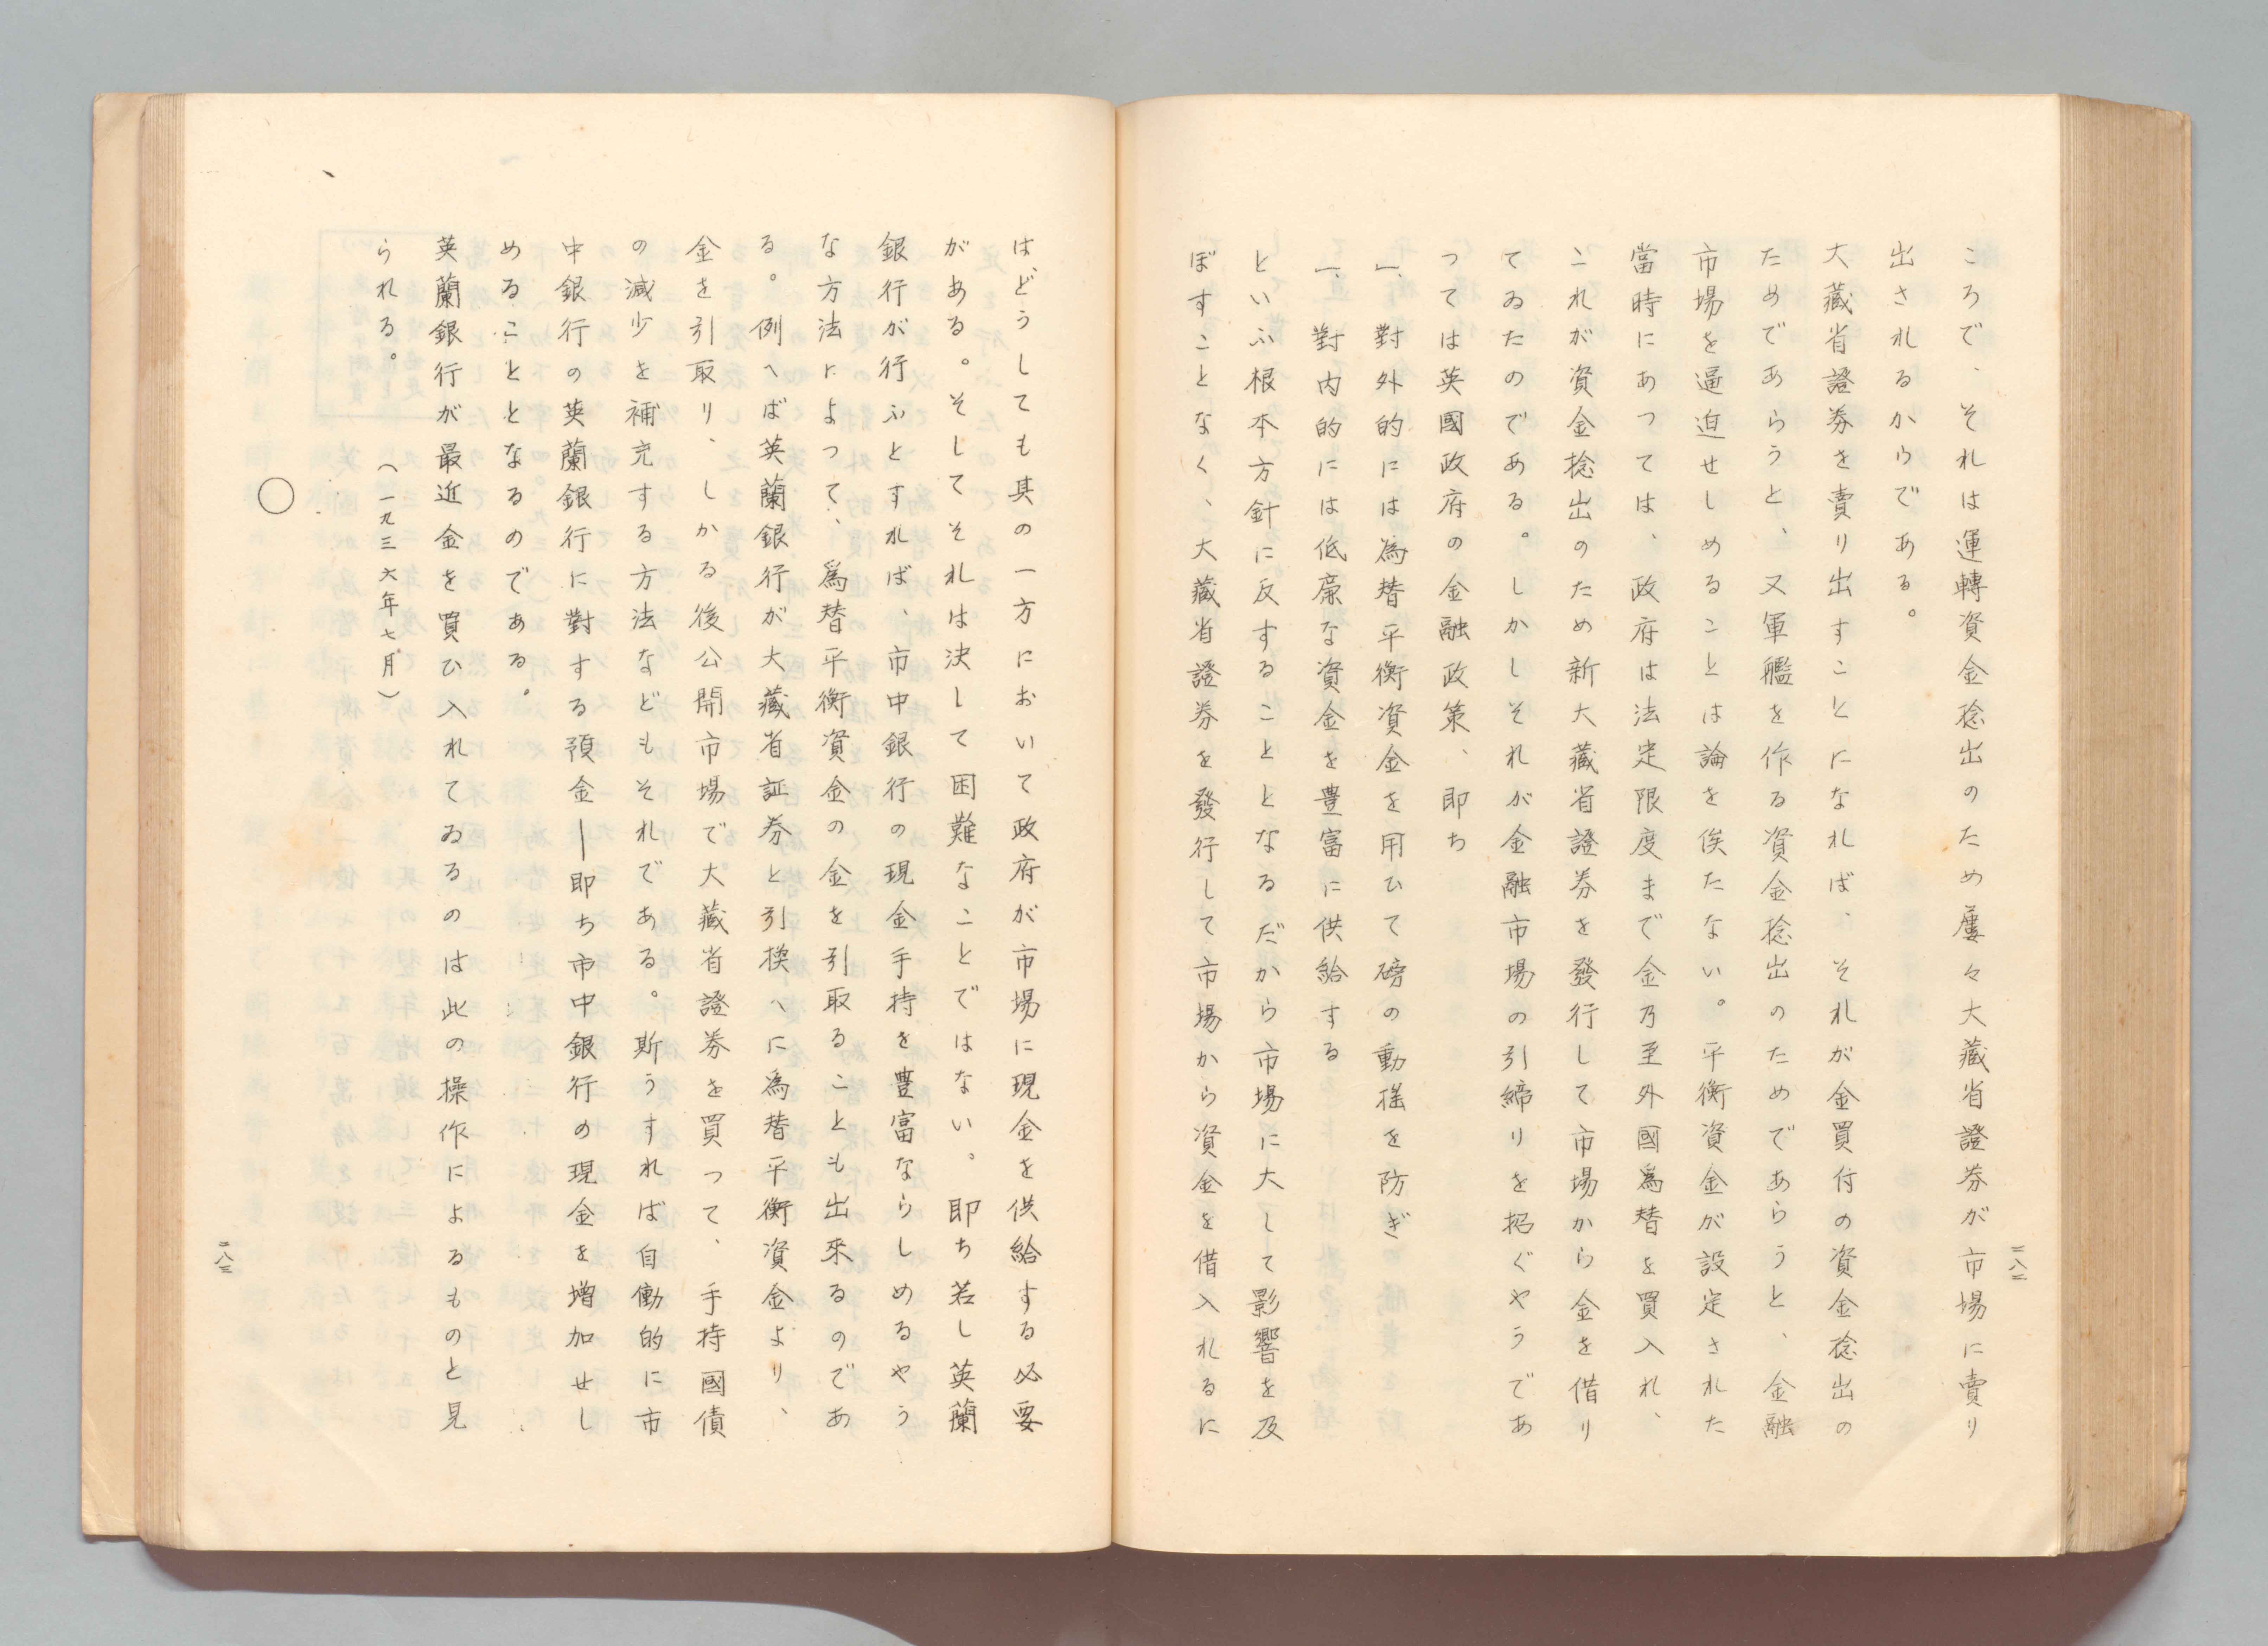 ころで、それは運轉資金捻出のため屢々大藏省證券が市場に賣り
出されるからである。
大藏省證券を賣り出すことになれば、それが金買付の資金捻出の
ためであらうと、又軍艦を作る資金捻出のためであらうと、金融
市場を逼迫せしめることは論を俟たない。平衡資金が設定された
當時にあつては、政府は法定限度まで金乃至外國爲替を買入れ、
これが資金捻出のため新大藏省證券を發行して市場から金を借り
てゐたのである。しかしそれが金融市場の引締りを招ぐやうであ
つては英國政府の金融政策、即ち
一、對外的には爲替平衡資金を用ひて磅の動搖を防ぎ
一、對内的には低廉な資金を豊富に供給する
といふ根本方針に反することとなるだから市場に大して影響を及
ぼすことなく、大藏省證券を發行して市場から資金を借入れるに
二八二
は、どうしても其の一方において政府が市場に現金を供給する必要
がある。そしてそれは決して困難なことではない。即ち若し英蘭
銀行が行ふとすれば、市中銀行の現金手持を豊富ならしめるやう
な方法によつて、爲替平衡資金の金を引取ることも出來るのであ
る。例へば英蘭銀行が大藏省証券と引換へに爲替平衡資金より、
金を引取り、しかる後公開市場で大藏省證券を買つて、手持國債
の減少を補充する方法などもそれである。斯うすれば自働的に市
中銀行の英蘭銀行に對する預金―即ち市中銀行の現金を増加せし
めることとなるのである。
英蘭銀行が最近金を買ひ入れてゐるのは此の操作によるものと見
られる。（一九三六年七月）
二八三